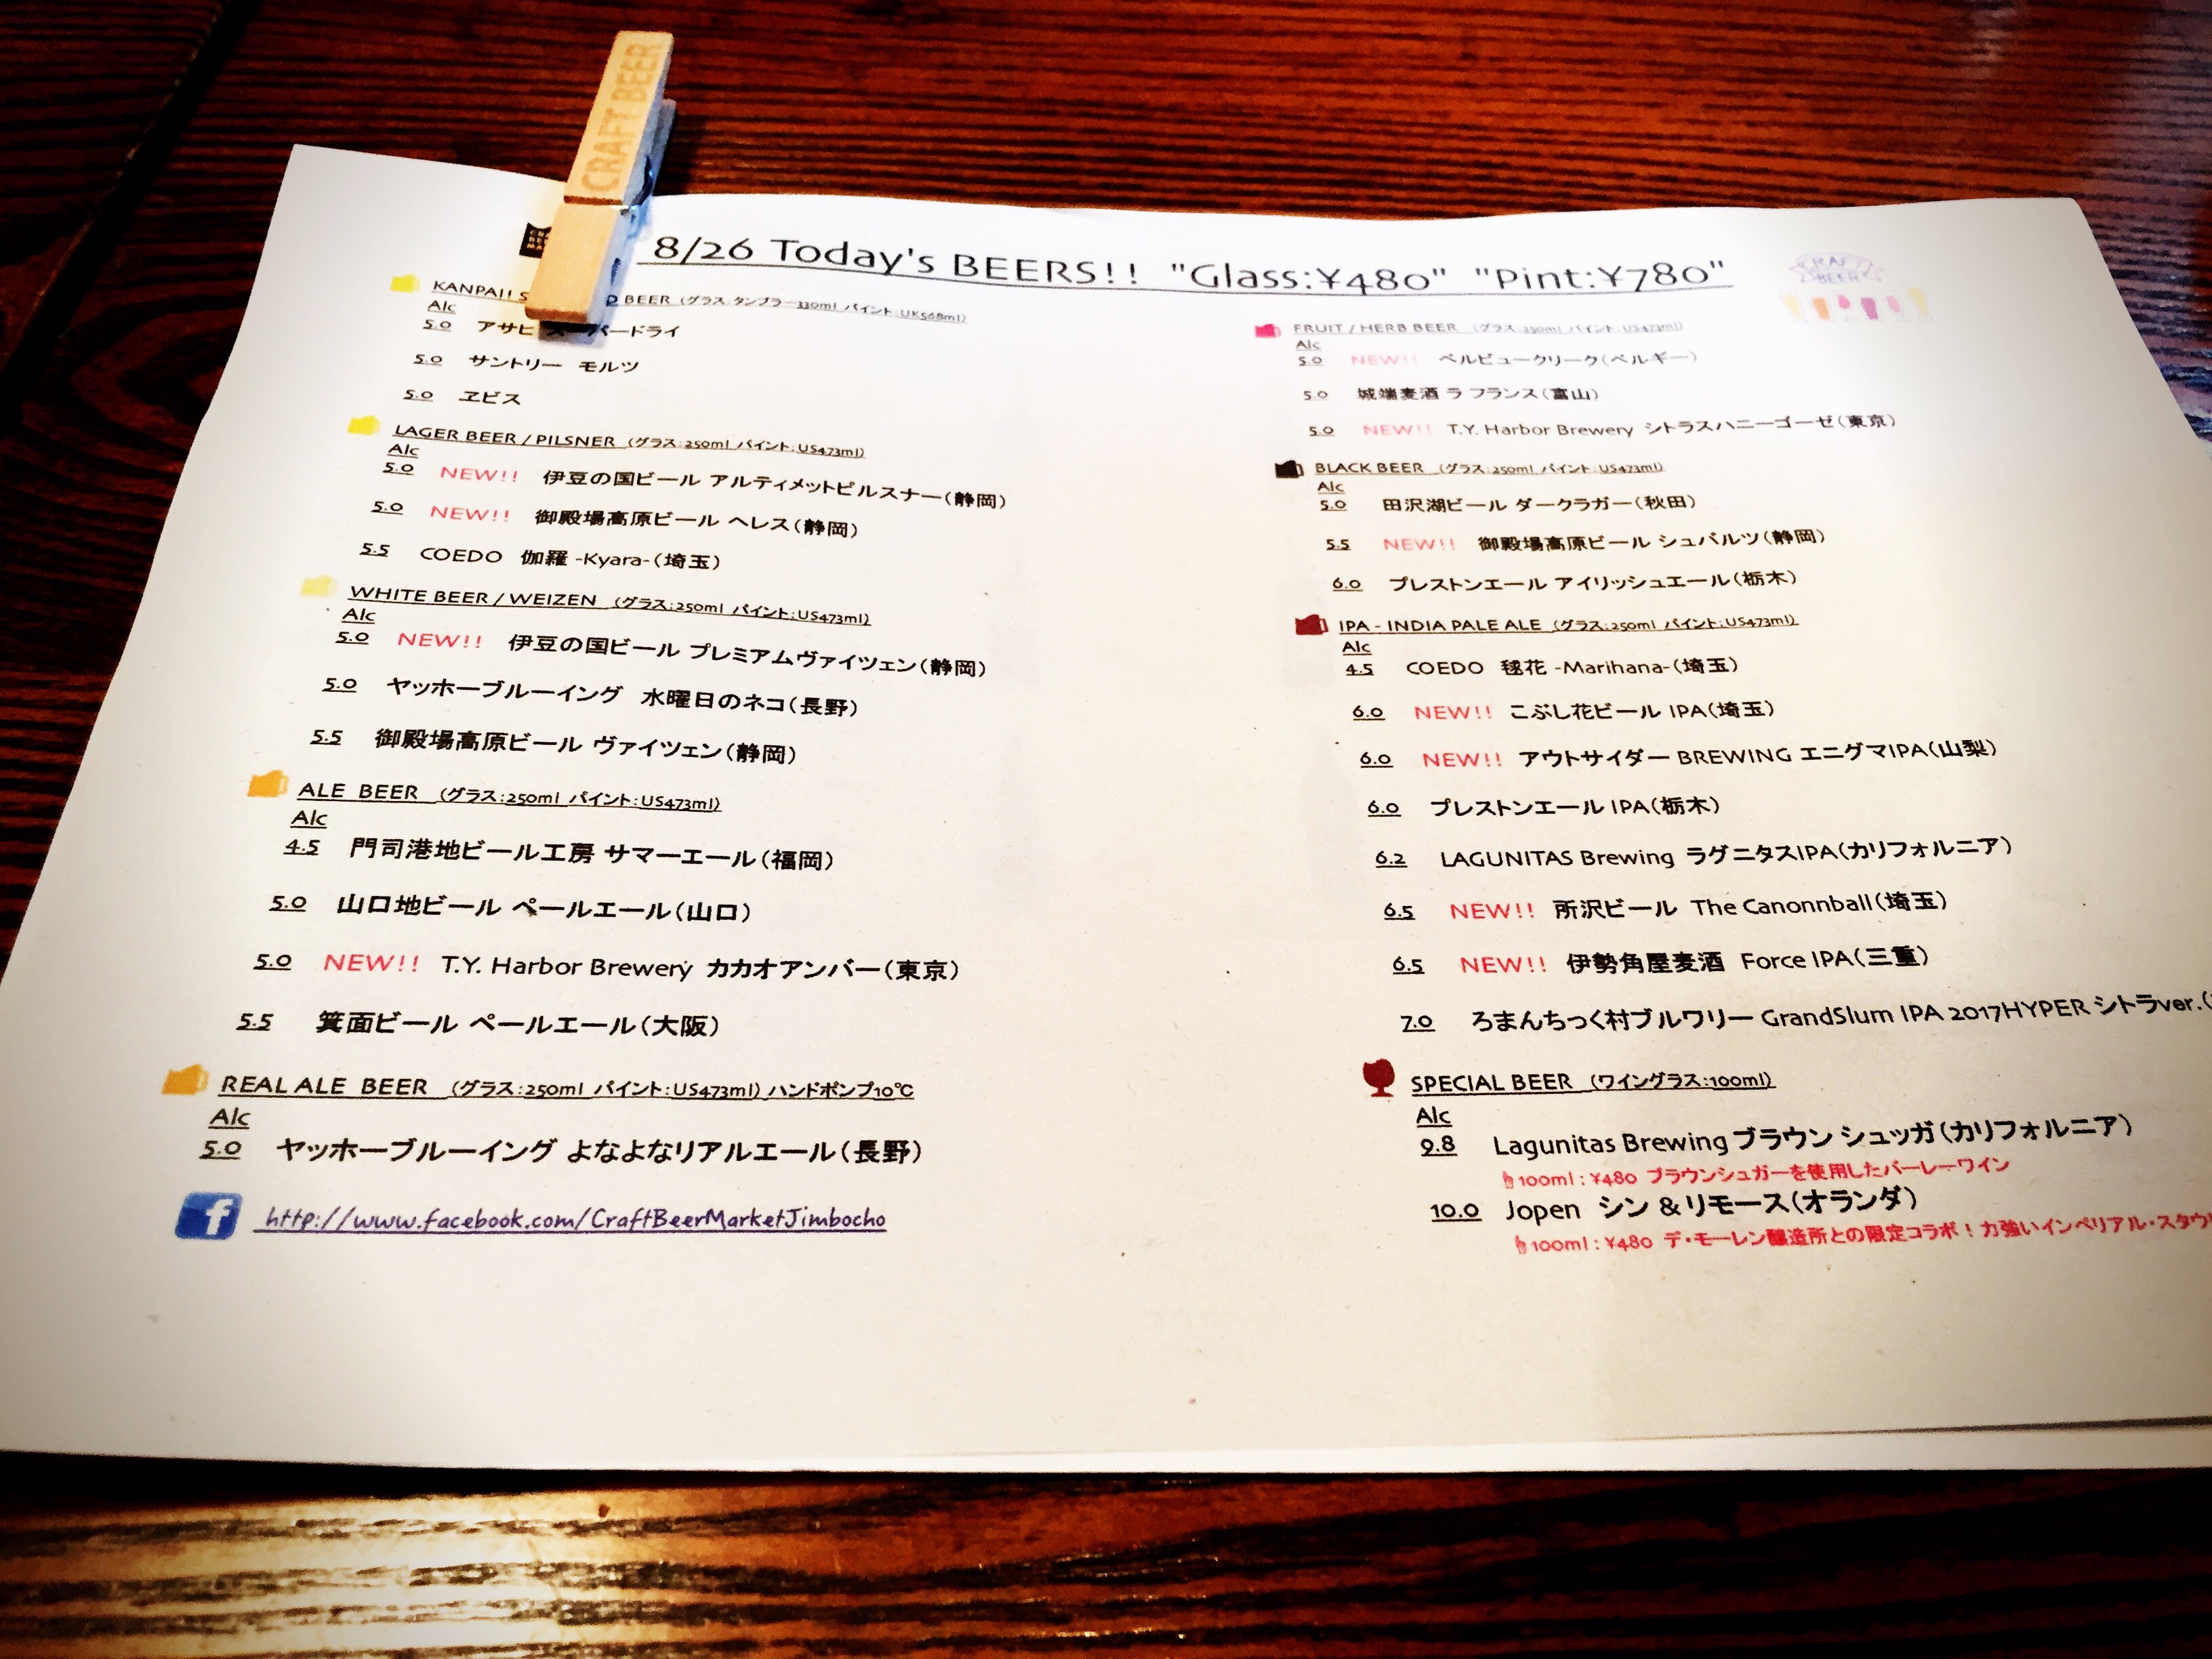 CRAFT BEER
8/26 Today's BEERS!! "Glass:¥480" "Pint:¥780"
CRAFT
BEER
KANPAI! BEER (グラス:タンブラー330ml パイント:UK568ml)
Alc
5.0 アサヒ スーパードライ
5.0 サントリー モルツ
5.0 ヱビス
LAGER BEER / PILSNER (グラス:250ml パイント:US473ml)
Alc
5.0 NEW!! 伊豆の国ビール アルティメットピルスナー(静岡)
5.0 NEW!! 御殿場高原ビール ヘレス(静岡)
5.5 COEDO 伽羅 -Kyara-(埼玉)
WHITE BEER / WEIZEN (グラス:250ml パイント:US473ml)
Alc
5.0 NEW!! 伊豆の国ビール プレミアムヴァイツェン(静岡)
5.0 ヤッホーブルーイング 水曜日のネコ(長野)
5.5 御殿場高原ビール ヴァイツェン(静岡)
ALE BEER (グラス:250ml パイント:US473ml)
Alc
4.5 門司港地ビール工房 サマーエール(福岡)
5.0 山口地ビール ペールエール(山口)
5.0 NEW!! T.Y. Harbor Brewery カカオアンバー(東京)
5.5 箕面ビール ペールエール(大阪)
REAL ALE BEER (グラス:250ml パイント:US473ml) ハンドポンプ10℃
Alc
5.0 ヤッホーブルーイング よなよなリアルエール(長野)
http://www.facebook.com/CraftBeerMarketJimbocho
FRUIT / HERB BEER (グラス:250ml パイント:US473ml)
Alc
5.0 NEW!! ベルビュークリーク(ベルギー)
5.0 城端麦酒 ラ フランス(富山)
5.0 NEW!! T.Y. Harbor Brewery シトラスハニーゴーゼ(東京)
BLACK BEER (グラス:250ml パイント:US473ml)
Alc
5.0 田沢湖ビール ダークラガー(秋田)
5.5 NEW!! 御殿場高原ビール シュバルツ(静岡)
6.0 プレストンエール アイリッシュエール(栃木)
IPA - INDIA PALE ALE (グラス:250ml パイント:US473ml)
Alc
4.5 COEDO 毬花 -Marihana-(埼玉)
6.0 NEW!! こぶし花ビール IPA(埼玉)
6.0 NEW!! アウトサイダー BREWING エニグマIPA(山梨)
6.0 プレストンエール IPA(栃木)
6.2 LAGUNITAS Brewing ラグニタスIPA(カリフォルニア)
6.5 NEW!! 所沢ビール The Canonnball(埼玉)
6.5 NEW!! 伊勢角屋麦酒 Force IPA(三重)
7.0 ろまんちっく村ブルワリー GrandSlum IPA 2017HYPER シトラver.(
SPECIAL BEER (ワイングラス:100ml)
Alc
9.8 Lagunitas Brewing ブラウン シュッガ(カリフォルニア)
100ml : ¥480 ブラウンシュガーを使用したバーレーワイン
10.0 Jopen シン & リモース(オランダ)
100ml : ¥480 デ・モーレン醸造所との限定コラボ！力強いインペリアル・スタウ